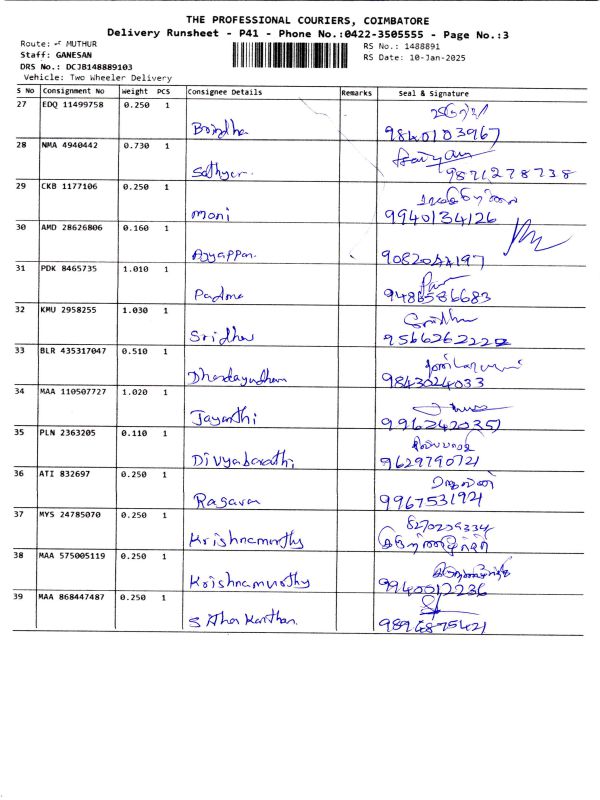 THE PROFESSIONAL COURIERS, COIMBATORE
Delivery Runsheet - P41 - Phone No.:0422-3505555 - Page No.:3
Route: MUTHUR
RS No.: 1488891
Staff: GANESAN
RS Date: 10-Jan-2025
DRS No.: DCJB148889103
Vehicle: Two Wheeler Delivery
S No Consignment No Weight PCS Consignee Details Remarks Seal & Signature
27 EDQ 11499758 0.250 1
Brindha 9840103967
28 NMA 4940442 0.730 1
9871278738
29 CKB 1177106 0.250 1
moni 9940134126
30 AMD 28626806 0.160 1
Ayyappan. 9082044197
31 PDK 8465735 1.010 1
Padma 9486586683
32 KMU 2958255 1.030 1
Sridhar 9566262222
33 BLR 435317047 0.510 1
9843024033
34 MAA 110507727 1.020 1
Jayanthi 9962420357
35 PLN 2363205 0.110 1
Divyabarathi 9629790721
36 ATI 832697 0.250 1
Ragavan 9967531921
37 MYS 24785070 0.250 1
8270239334
Krishnamurthy
38 MAA 575005119 0.250 1
Krishnamurthy 9940012236
39 MAA 868447487 0.250 1
9894875421